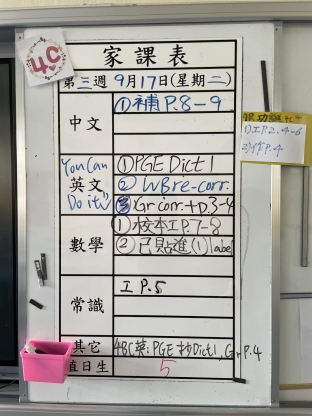 4C
家課表
第三週 9月17日(星期二)
中文
①補P.8-9
You Can
英文
Do it
①PGE Dict 1
②WB re-corr.
③Gr corr.+p.3-4
數學
①校本工P.7-8
②已貼進(1)label
常識
工P.5
其它
4BC英:PGE抄Dict1, Gr P.4
值日生
5
1)工P.2,4-6
2)作P.4